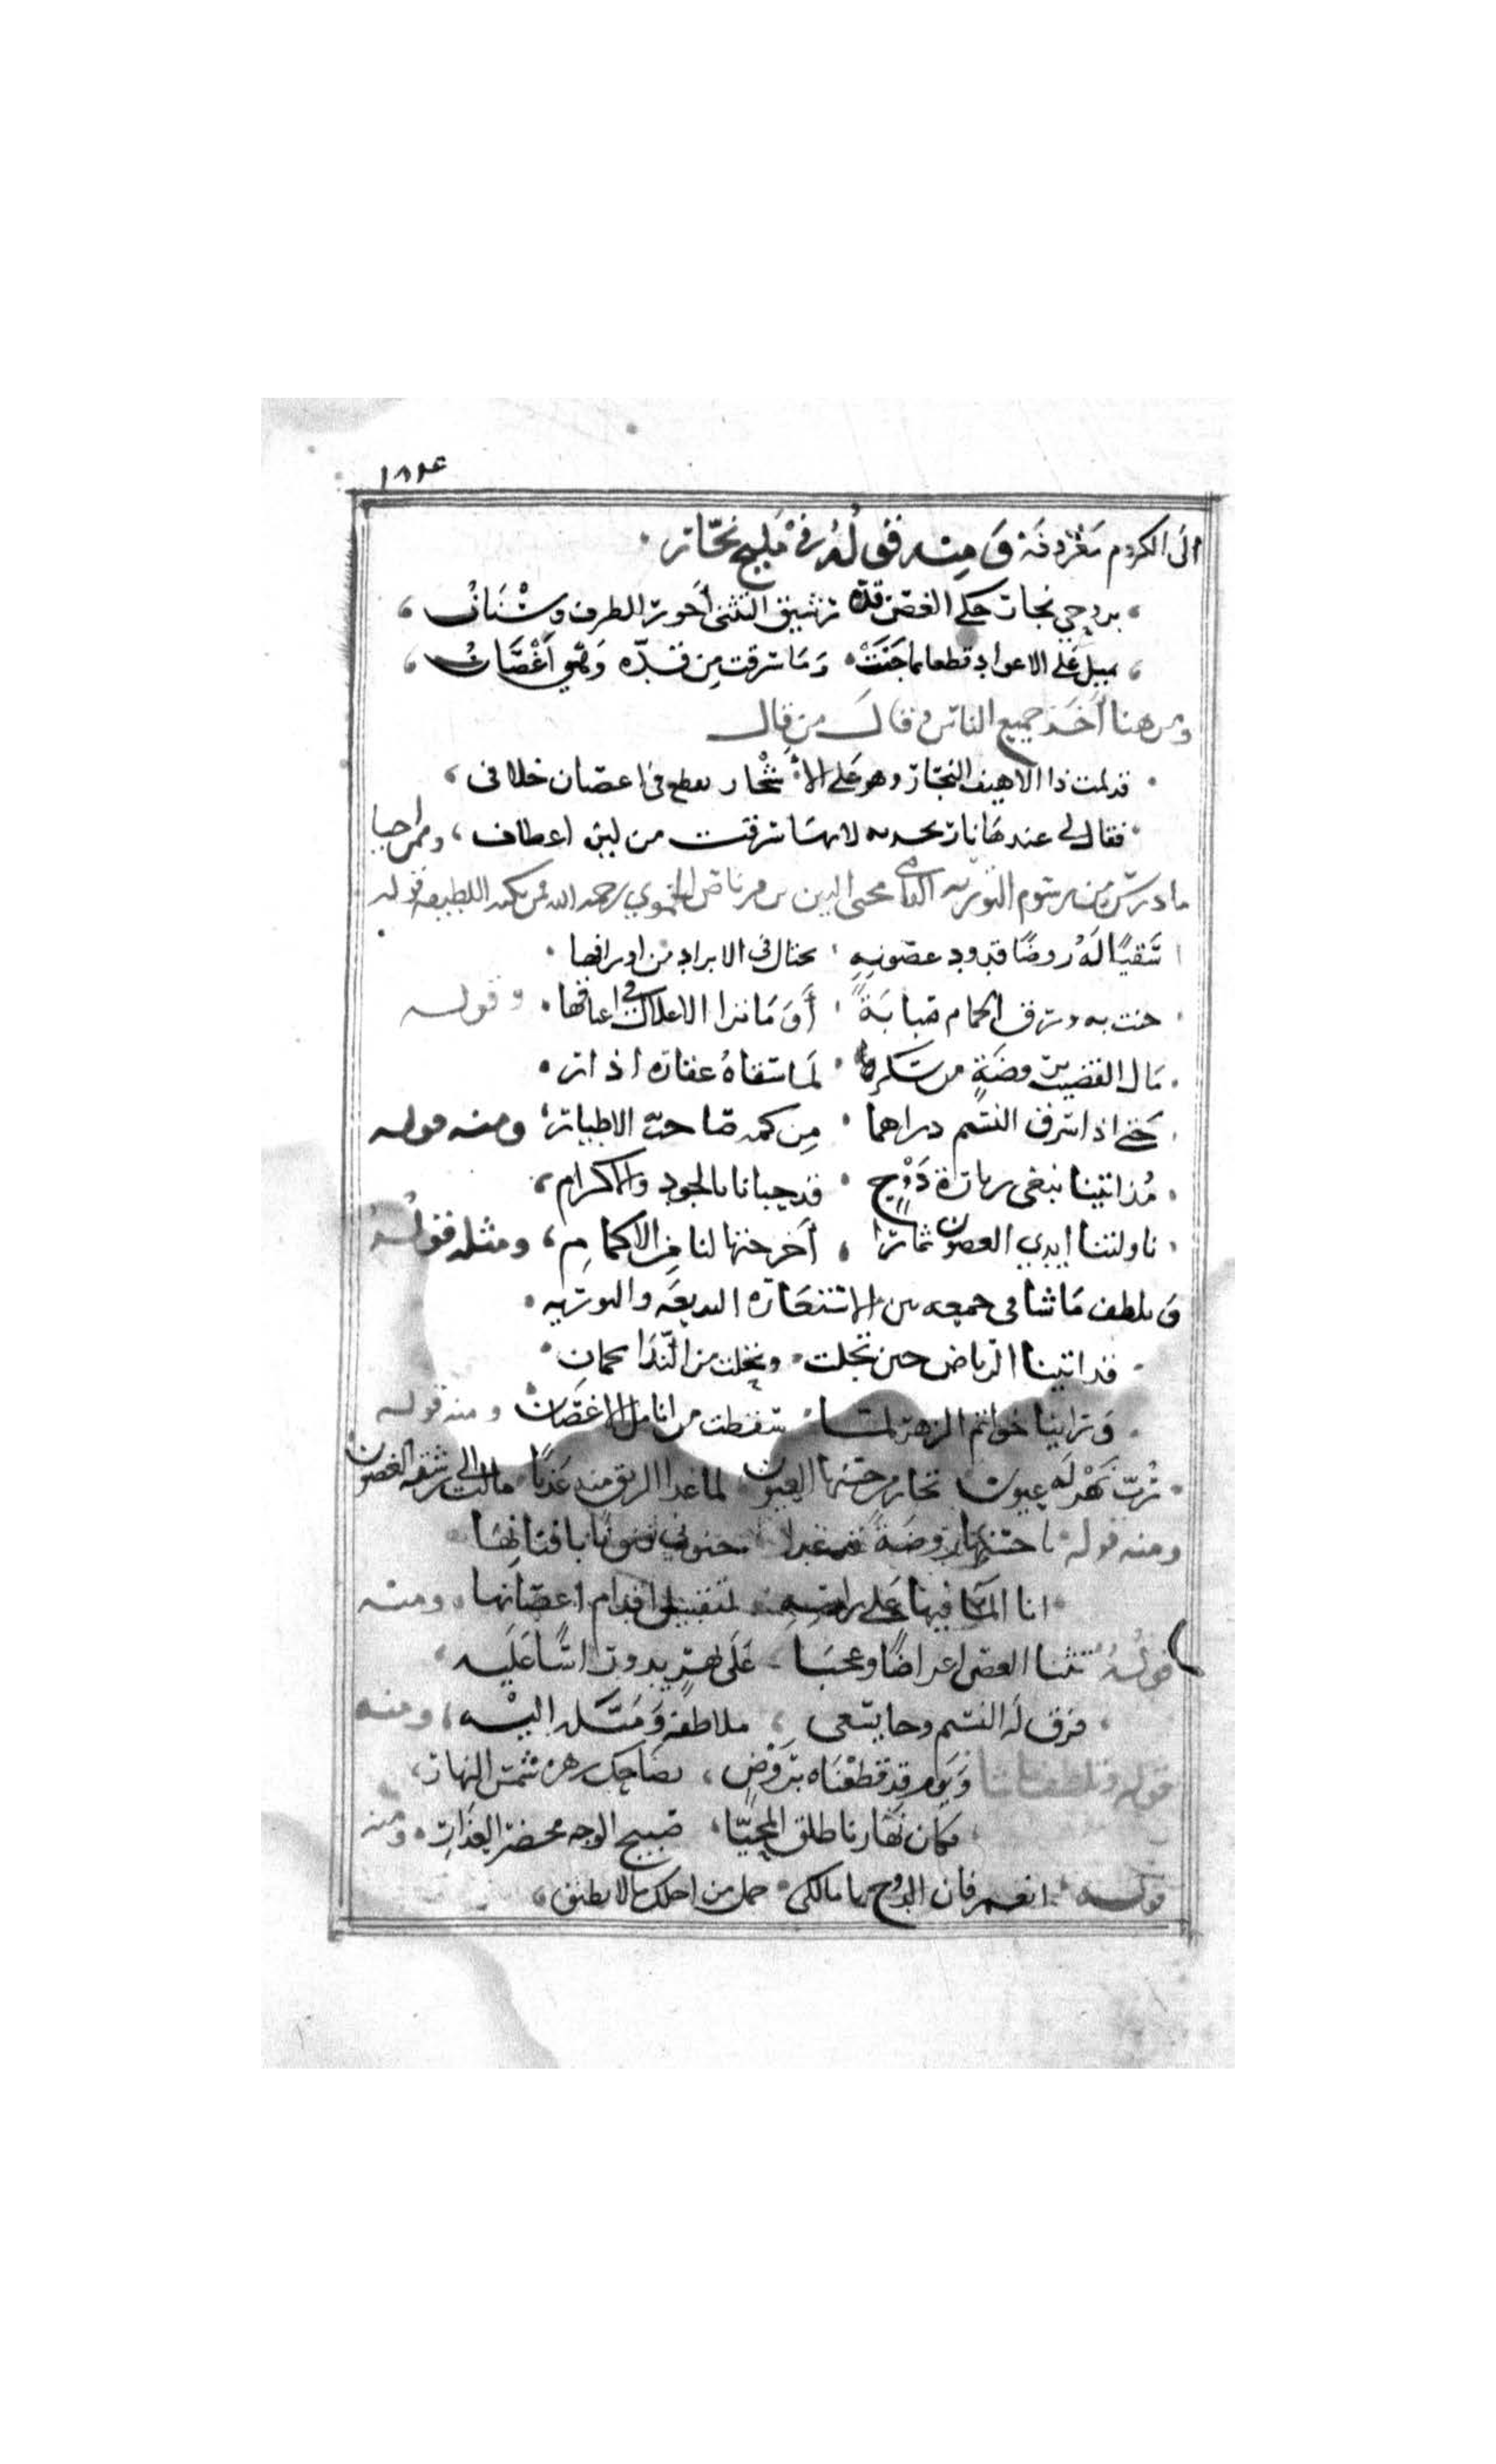 ١٨٢٤
الى الكروم معروفة ومنه قوله في مليح نجار
بروحي نجار حكى الغصن قده رشيق التثنى أحور الطرف وسنان
يميل على الاعواد قطعا بما جنت وما سرقت من قده وهي أغصان
ومن هنا أخذ جميع الناس وقال من قال
قد لمت ذا الاهيف النجار وهو على الاشجار يقطع في اغصان خلاف
فقال لي عندها نار لانها سرقت من لين اعطاف، وممن احيا
ما درس من رسوم التورية القاضي محيي الدين بن قرناص الحموي رحمه الله فمن نكته اللطيفة قوله
سقيًا له روضًا قدود غصونه يختال في الابراد من اوراقها
جنت به ورق الحمام صبابة أوما ترا الاغلال في اعناقها وقوله
مال القضيب بروضة من سكره لما سقاه عقاره اذار
حتى اذا سرق النسيم دراهما من كمه صاحت الاطيار ومنه قوله
مذ اتينا نبغى زيارة دوح قد حبانا بالجود والاكرام
ناولتنا ايدي الغصون ثمارا أخرجتها لنا من الاكمام، ومثله قوله
وتلطف ما شا في جمعه بين الاستعارة البديعة والتورية
قد اتينا الرياض حين تجلت وتحلت من الندا بجمان
وراينا خواتم الزهر لما سقطت من انامل الاغصان ومنه قوله
رب نهر له عيون تحار من حسنها العيون لما غدا الريق منه عذبًا مالت الى رشفه الغصون
ومنه قوله يا حسنها روضة قد غدا جنوني فنونًا بافنانها
انا الما فيها على راسه لتقبيل اقدام اغصانها ومنه
قوله تثنا الغصن اعراضًا وعجبا على نهر يدور اسًا عليه
فرق له النسيم وجا يسعى ملاطفة وميله اليه، ومنه
قوله وتلطف ما شا ويوم قد قطعناه بروض يضاحك زهره شمس النهار
فكان نهارنا طلق المحيا صبيح الوجه مخضر العذار ومنه
قوله انعم فان الدوح يا مالكى حمل من اجلك ما لا يطيق